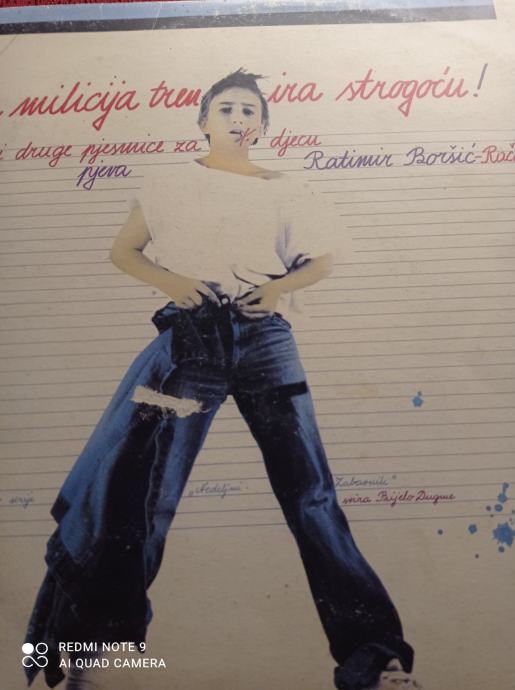 milicija trenira strogoću!
i druge pjesmice za djecu
pjeva Ratimir Boršić-Rača
serija "Nedeljni Zabavnik"
svira Bijelo Dugme
REDMI NOTE 9
AI QUAD CAMERA